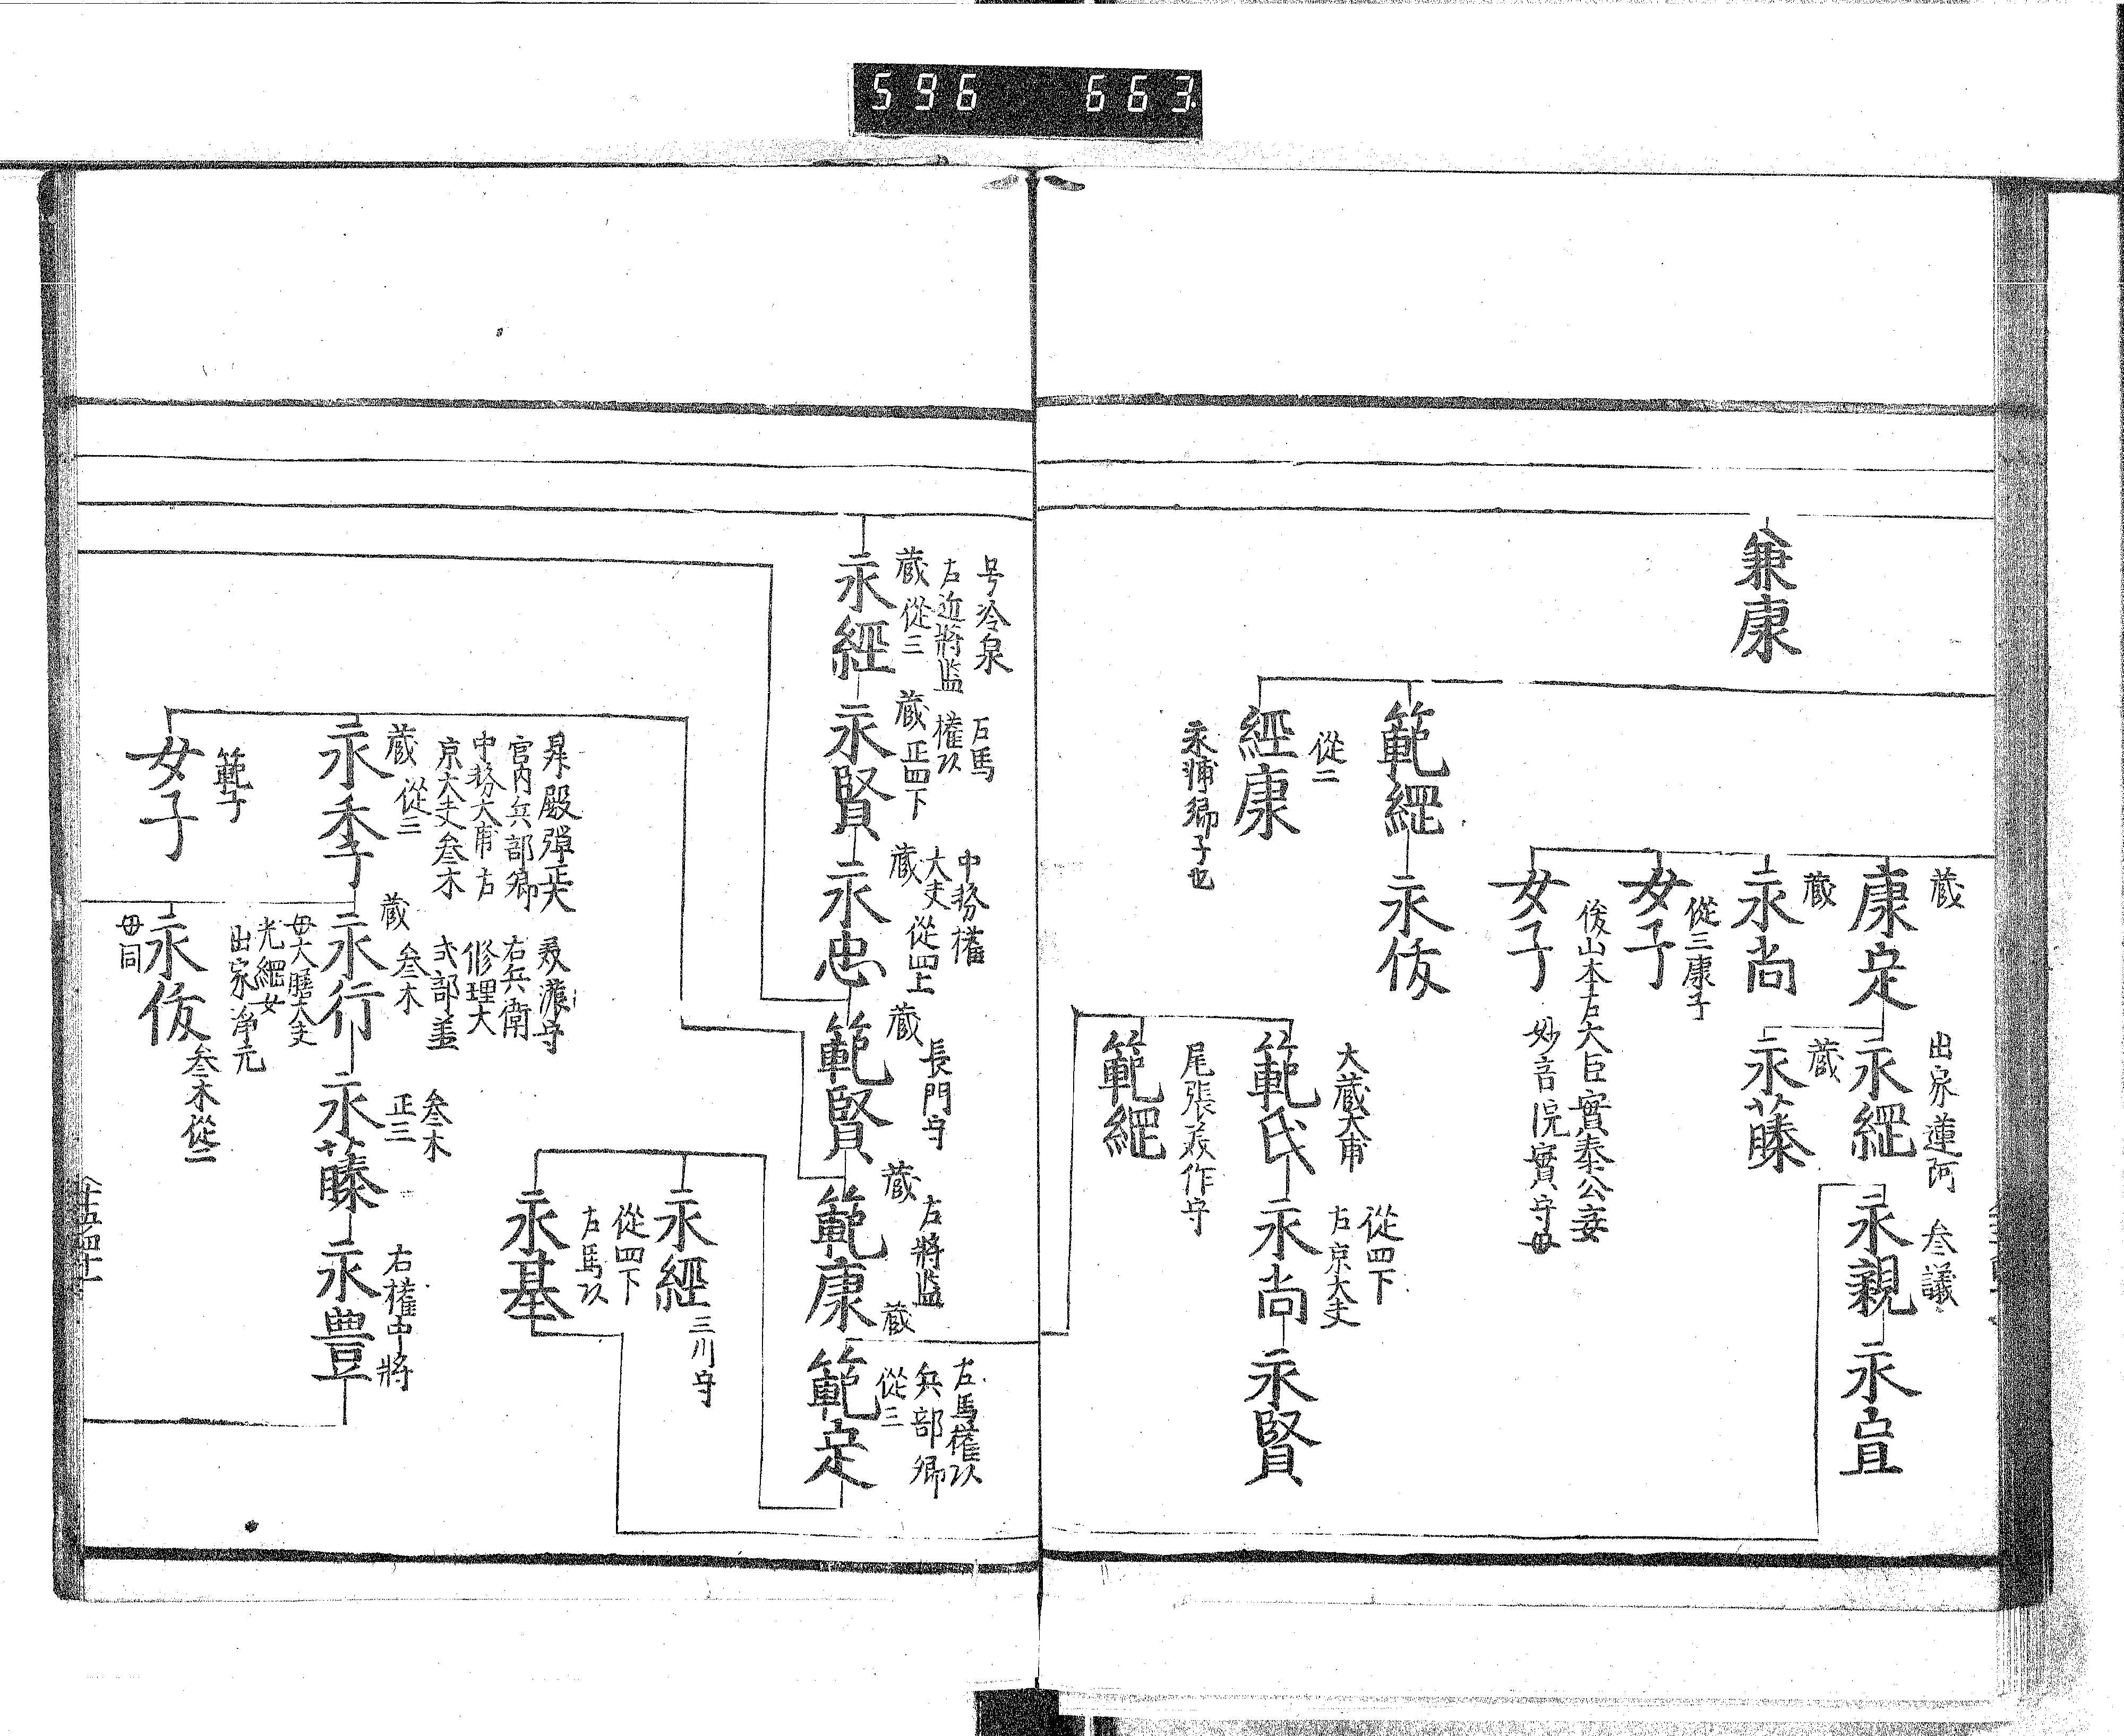 596 663
兼康
蔵
康定
出家蓮阿
永繼
参議
永親
永宣
蔵
永尚
蔵
永藤
女子
從三康子
女子
後山本左大臣實泰公妾
妙言院實守母
範繼
永俊
從二
經康
永補卿子也
大蔵大甫
範氏
從四下
左京大夫
永尚
永賢
範繼
尾張美作守
号冷泉
左近將監
蔵 從三
永經
右馬
權頭
蔵 正四下
永賢
中務權
大夫 從四上
蔵
永忠
蔵
長門守
範賢
蔵
左將監
範康
蔵
左馬權頭
兵部卿
從三
範定
永經
三川守
從四下
左馬頭
永基
宮内兵部卿
中務大甫右
京大夫叁木
蔵 從三
永季
美濃守
右兵衛
修理大
蔵 叁木
永行
母大膳大夫
光繼女
出家淨元
叁木
正三
永藤
右權中將
永豊
範子
女子
永俊
母同
叁木從二